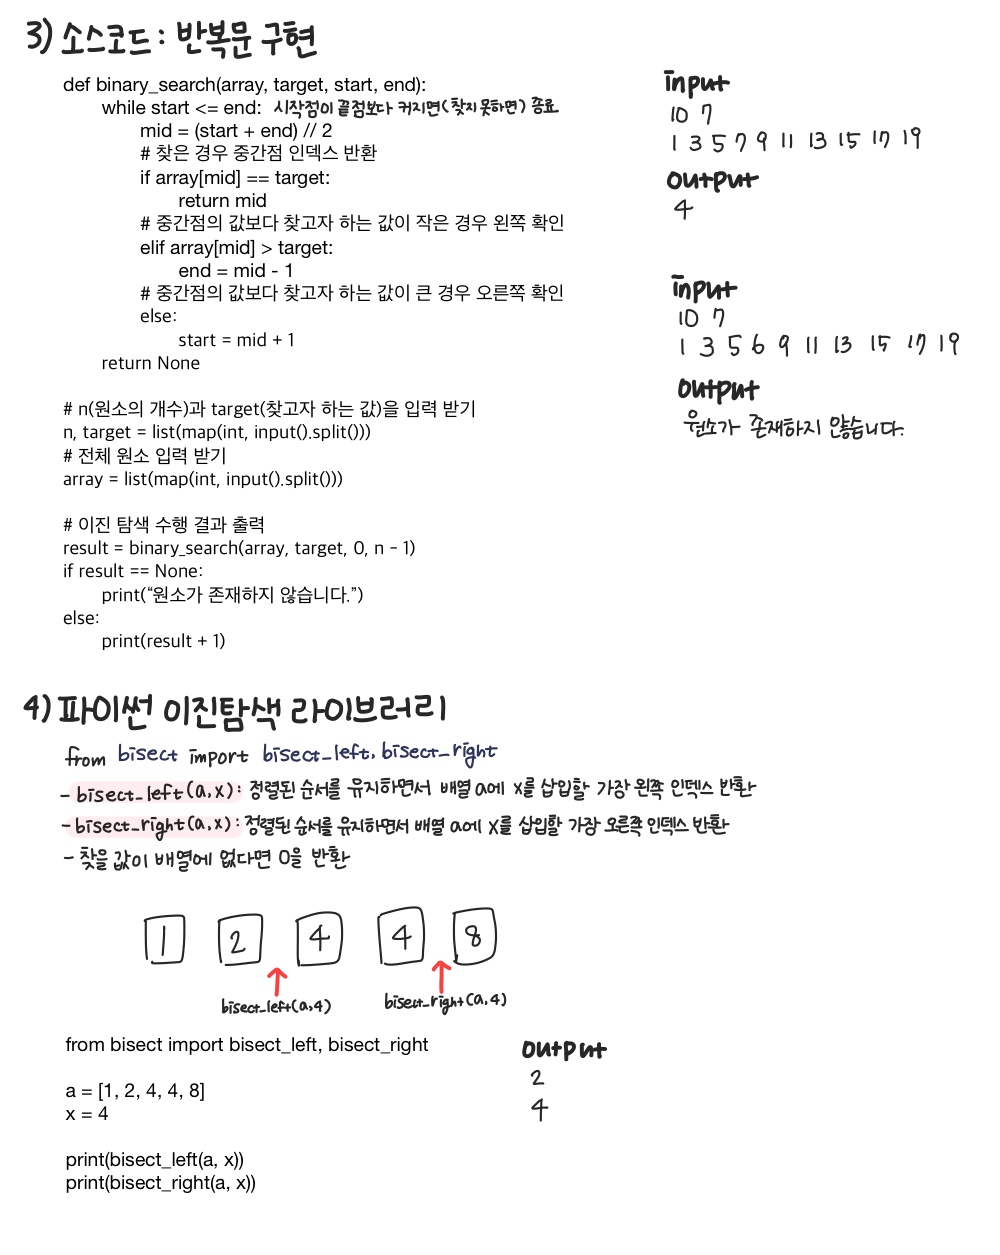 3) 소스코드 : 반복문 구현
def binary_search(array, target, start, end):
while start <= end: 시작점이 끝점보다 커지면(찾지 못하면) 종료
mid = (start + end) // 2
# 찾은 경우 중간점 인덱스 반환
if array[mid] == target:
return mid
# 중간점의 값보다 찾고자 하는 값이 작은 경우 왼쪽 확인
elif array[mid] > target:
end = mid - 1
# 중간점의 값보다 찾고자 하는 값이 큰 경우 오른쪽 확인
else:
start = mid + 1
return None
# n(원소의 개수)과 target(찾고자 하는 값)을 입력 받기
n, target = list(map(int, input().split()))
# 전체 원소 입력 받기
array = list(map(int, input().split()))
# 이진 탐색 수행 결과 출력
result = binary_search(array, target, 0, n - 1)
if result == None:
print(“원소가 존재하지 않습니다.”)
else:
print(result + 1)
input
10 7
1 3 5 7 9 11 13 15 17 19
output
4
input
10 7
1 3 5 6 9 11 13 15 17 19
output
원소가 존재하지 않습니다.
4) 파이썬 이진탐색 라이브러리
from bisect import bisect_left, bisect_right
- bisect_left(a,x): 정렬된 순서를 유지하면서 배열 a에 x를 삽입할 가장 왼쪽 인덱스 반환
- bisect_right(a,x): 정렬된 순서를 유지하면서 배열 a에 x를 삽입할 가장 오른쪽 인덱스 반환
- 찾을 값이 배열에 없다면 0을 반환
1 2 4 4 8
bisect_left(a,4) bisect_right(a,4)
from bisect import bisect_left, bisect_right
a = [1, 2, 4, 4, 8]
x = 4
print(bisect_left(a, x))
print(bisect_right(a, x))
output
2
4